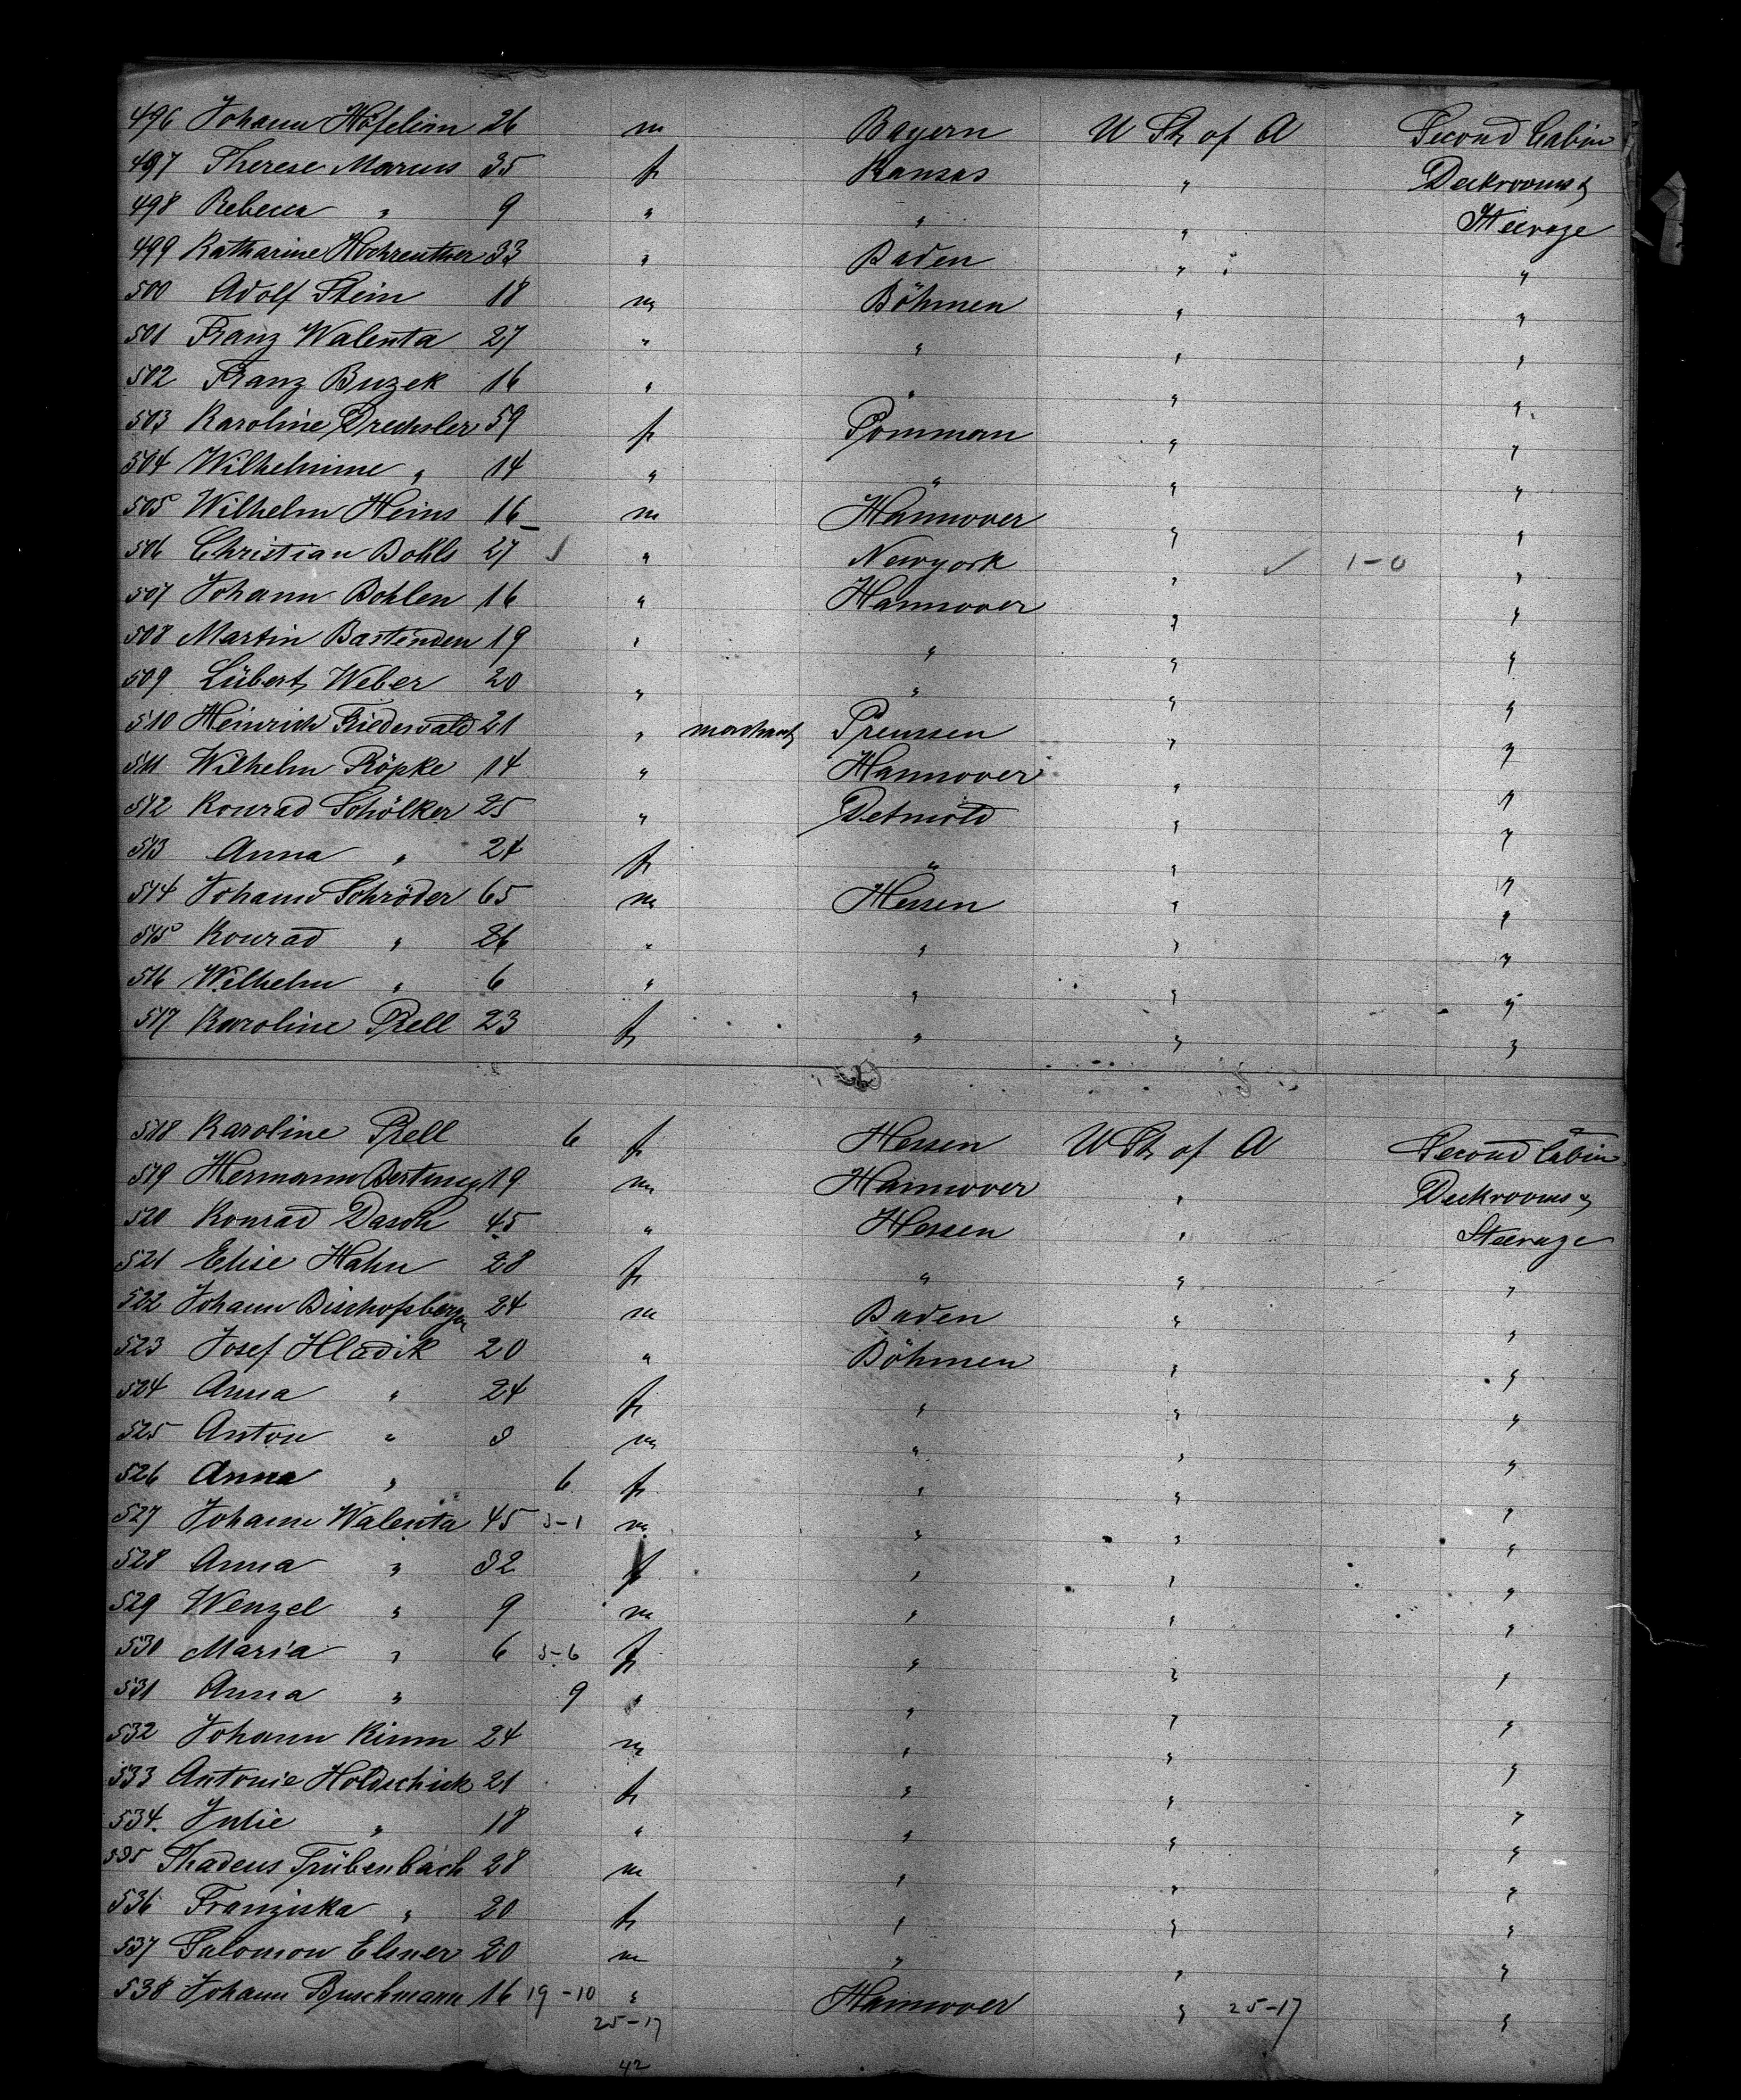 496 Johann Höfelein 26 m Bayern U St of A Second Cabin
497 Therese Marcus 35 f Kansas " Deckrooms &
498 Rebecca " 9 " " " Steerage
499 Katharine Hochreuther 33 " Baden " "
500 Adolf Stein 18 m Böhmen " "
501 Franz Walenta 27 " " " "
502 Franz Buzek 16 " " " "
503 Karoline Drechsler 59 f Pommern " "
504 Wilhelmine " 14 " " " "
505 Wilhelm Heins 16 m Hannover " "
506 Christian Bohls 27 " Newyork " ✓ 1-0 "
507 Johann Bohlen 16 " Hannover " "
508 Martin Bastenden 19 " " " "
509 Lübert Weber 20 " " " "
510 Heinrich Friedewald 21 " merchant Preussen " "
511 Wilhelm Röpke 14 " Hannover " "
512 Konrad Schölker 25 " Detmold " "
513 Anna " 24 f " " "
514 Johann Schröder 65 m Hessen " "
515 Konrad " 26 " " " "
516 Wilhelm " 6 " " " "
517 Karoline Prell 23 f " " "
518 Karoline Prell 6 f Hessen U St of A Second Cabin
519 Hermann Bertung 19 m Hannover " Deckrooms &
520 Konrad Dasch 45 " Hessen " Steerage
521 Elise Hahn 28 f " " "
522 Johann Bischofsberger 24 m Baden " "
523 Josef Hladik 20 " Böhmen " "
524 Anna " 24 f " " "
525 Anton " 3 m " " "
526 Anna " 6 f " " "
527 Johann Walenta 45 3-1 m " " "
528 Anna " 32 f " " "
529 Wenzel " 9 m " " "
530 Maria " 6 5-6 f " " "
531 Anna " 9 " " " "
532 Johann Kimm 24 m " " "
533 Antonie Holdschick 21 f " " "
534. Julie " 18 " " " "
535 Thadeus Trübenbach 28 m " " "
536 Franziska " 20 f " " "
537 Salomon Elsner 20 m " " "
538 Johann Buschmann 16 19-10 " Hannover " 25-17 "
25-17
42